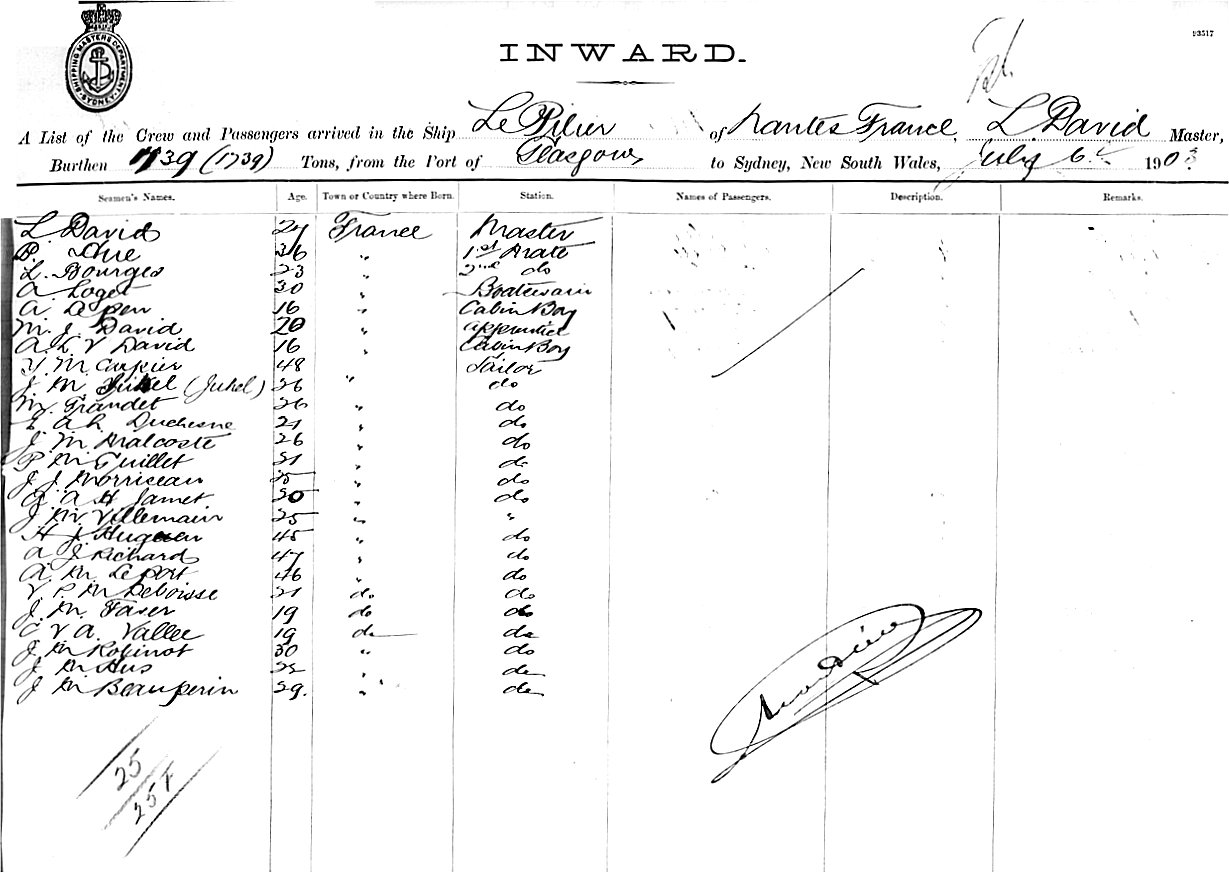 SHIPPING MASTERS DEPARTMENT SYDNEY
93517
INWARD.
A List of the Crew and Passengers arrived in the Ship Le Pilier of Nantes France, L. David Master,
Burthen 1739 (1739) Tons, from the Port of Glasgow to Sydney, New South Wales, July 6th 1903
Seamen's Names. Age. Town or Country where Born. Station. Names of Passengers. Description. Remarks.
L. David 27 France Master
P. 36 " 1st Mate
L. Bourges 23 " 2nd do
A Loget 30 " Boatswain
A. Le pen 16 " Cabin Boy
M. J. David 20 " apprentice
A. L V David 16 " Cabin Boy
Y. M Carpier 48 " Sailor
J. M. Jukel (Jukel) 26 " do
M. Grandet 26 " do
E A L Duchesne 21 " do
J. M. Malcoste 26 " do
P M Guillet 21 " do
J J Morriseau 25 " do
G. A H Jamet 20 " do
J. M. Villemain 25 " "
H J. Huguen 45 " do
A J. Richard 47 " do
A. M. Le port 46 " do
V P M Deboisse 21 do do
J. M. Faser 19 do do
C V A. Vallee 19 do do
J M Robinot 30 " do
J. M Hus 22 " do
J M Beauperin 29. " do
25
25 F